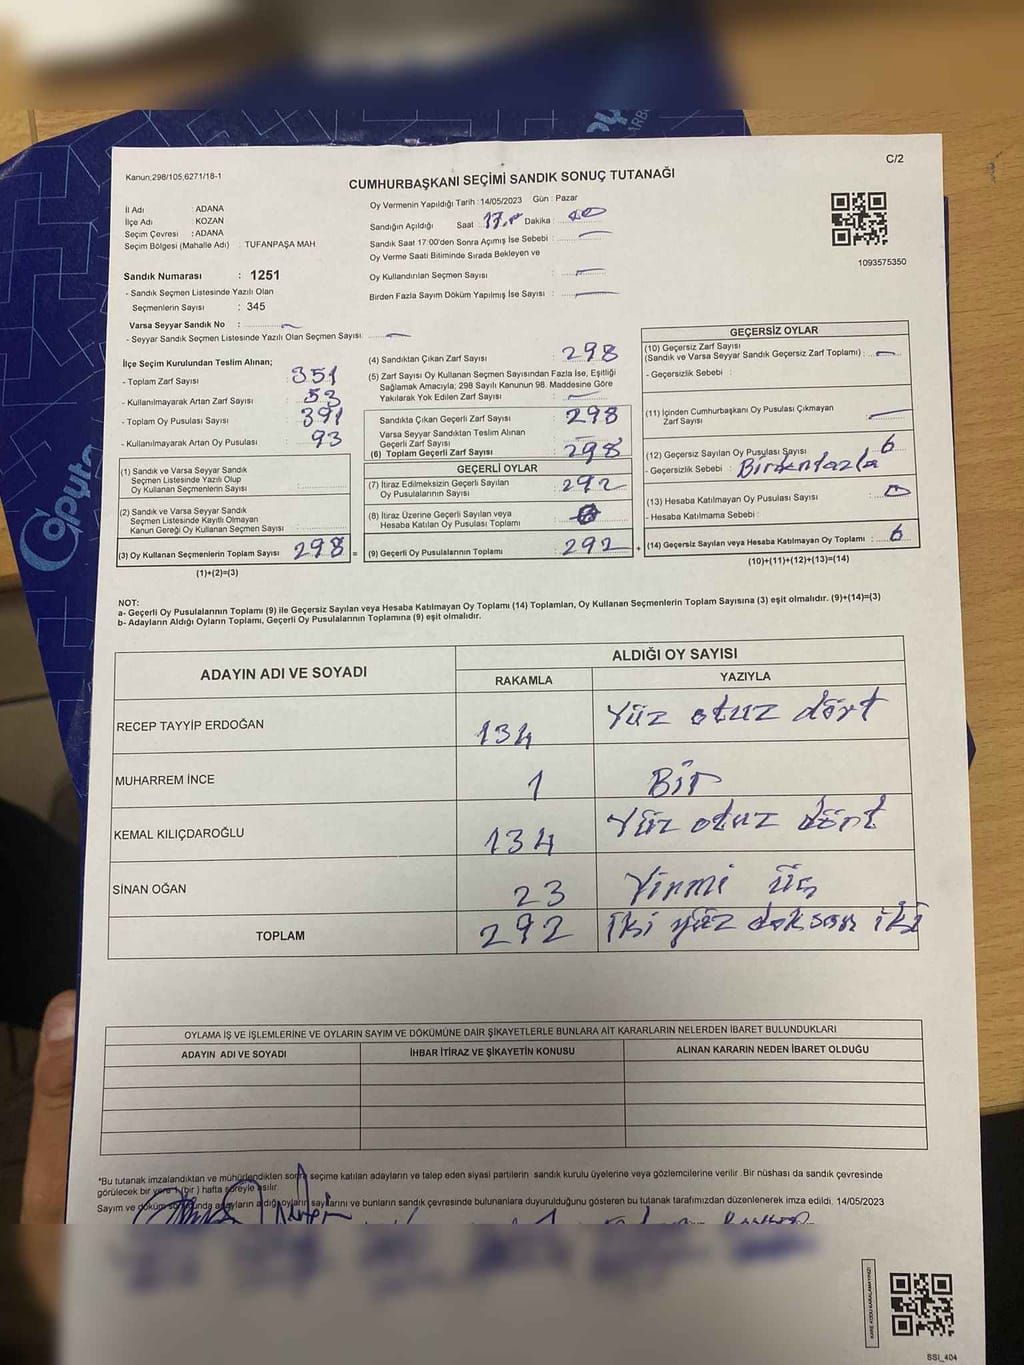 C/2
Kanun;298/105,6271/18-1
CUMHURBAŞKANI SEÇİMİ SANDIK SONUÇ TUTANAĞI
İl Adı : ADANA
İlçe Adı : KOZAN
Seçim Çevresi : ADANA
Seçim Bölgesi (Mahalle Adı) : TUFANPAŞA MAH
Sandık Numarası : 1251
- Sandık Seçmen Listesinde Yazılı Olan
Seçmenlerin Sayısı : 345
Varsa Seyyar Sandık No :
- Seyyar Sandık Seçmen Listesinde Yazılı Olan Seçmen Sayısı :
Oy Vermenin Yapıldığı Tarih : 14/05/2023 Gün : Pazar
Sandığın Açıldığı Saat 17.00 Dakika :
Sandık Saat 17:00'den Sonra Açmış İse Sebebi :
Oy Verme Saati Bitiminde Sırada Bekleyen ve
Oy Kullandırılan Seçmen Sayısı :
Birden Fazla Sayım Döküm Yapılmış İse Sayısı :
1093575350
İlçe Seçim Kurulundan Teslim Alınan;
- Toplam Zarf Sayısı : 351
- Kullanılmayarak Artan Zarf Sayısı : 53
- Toplam Oy Pusulası Sayısı : 391
- Kullanılmayarak Artan Oy Pusulası : 93
(1) Sandık ve Varsa Seyyar Sandık
Seçmen Listesinde Yazılı Olup
Oy Kullanan Seçmenlerin Sayısı :
(2) Sandık ve Varsa Seyyar Sandık
Seçmen Listesinde Kayıtlı Olmayan
Kanun Gereği Oy Kullanan Seçmen Sayısı :
(3) Oy Kullanan Seçmenlerin Toplam Sayısı : 298 =
(1)+(2)=(3)
(4) Sandıktan Çıkan Zarf Sayısı : 298
(5) Zarf Sayısı Oy Kullanan Seçmen Sayısından Fazla İse, Eşitliği
Sağlamak Amacıyla; 298 Sayılı Kanunun 98. Maddesine Göre
Yakılarak Yok Edilen Zarf Sayısı :
Sandıkta Çıkan Geçerli Zarf Sayısı : 298
Varsa Seyyar Sandıktan Teslim Alınan
Geçerli Zarf Sayısı :
(6) Toplam Geçerli Zarf Sayısı : 298
GEÇERLİ OYLAR
(7) İtiraz Edilmeksizin Geçerli Sayılan
Oy Pusulalarının Sayısı : 292
(8) İtiraz Üzerine Geçerli Sayılan veya
Hesaba Katılan Oy Pusulası Toplamı :
(9) Geçerli Oy Pusulalarının Toplamı : 292 +
GEÇERSİZ OYLAR
(10) Geçersiz Zarf Sayısı
(Sandık ve Varsa Seyyar Sandık Geçersiz Zarf Toplamı) :
- Geçersizlik Sebebi :
(11) İçinden Cumhurbaşkanı Oy Pusulası Çıkmayan
Zarf Sayısı :
(12) Geçersiz Sayılan Oy Pusulası Sayısı : 6
- Geçersizlik Sebebi : Birdenfazla
(13) Hesaba Katılmayan Oy Pusulası Sayısı : 0
- Hesaba Katılmama Sebebi :
(14) Geçersiz Sayılan veya Hesaba Katılmayan Oy Toplamı : 6
(10)+(11)+(12)+(13)=(14)
NOT:
a- Geçerli Oy Pusulalarının Toplamı (9) ile Geçersiz Sayılan veya Hesaba Katılmayan Oy Toplamı (14) Toplamları, Oy Kullanan Seçmenlerin Toplam Sayısına (3) eşit olmalıdır. (9)+(14)=(3)
b- Adayların Aldığı Oyların Toplamı, Geçerli Oy Pusulalarının Toplamına (9) eşit olmalıdır.
ADAYIN ADI VE SOYADI
ALDIĞI OY SAYISI
RAKAMLA YAZIYLA
RECEP TAYYİP ERDOĞAN 134 Yüz otuz dört
MUHARREM İNCE 1 Bir
KEMAL KILIÇDAROĞLU 134 Yüz otuz dört
SİNAN OĞAN 23 Yirmi üç
TOPLAM 292 iki yüz doksan iki
OYLAMA İŞ VE İŞLEMLERİNE VE OYLARIN SAYIM VE DÖKÜMÜNE DAİR ŞİKAYETLERLE BUNLARA AİT KARARLARIN NELERDEN İBARET BULUNDUKLARI
ADAYIN ADI VE SOYADI İHBAR İTİRAZ VE ŞİKAYETİN KONUSU ALINAN KARARIN NEDEN İBARET OLDUĞU
*Bu tutanak imzalandıktan ve mühürlendikten sonra seçime katılan adayların ve talep eden siyasi partilerin sandık kurulu üyelerine veya gözlemcilerine verilir. Bir nüshası da sandık çevresinde
görülecek bir yere 1 (bir) hafta süreyle asılır.
Sayım ve döküm sonunda adayların aldığı oyların sayılarını ve bunların sandık çevresinde bulunanlara duyurulduğunu gösteren bu tutanak tarafımızdan düzenlenerek imza edildi. 14/05/2023
SSI_404